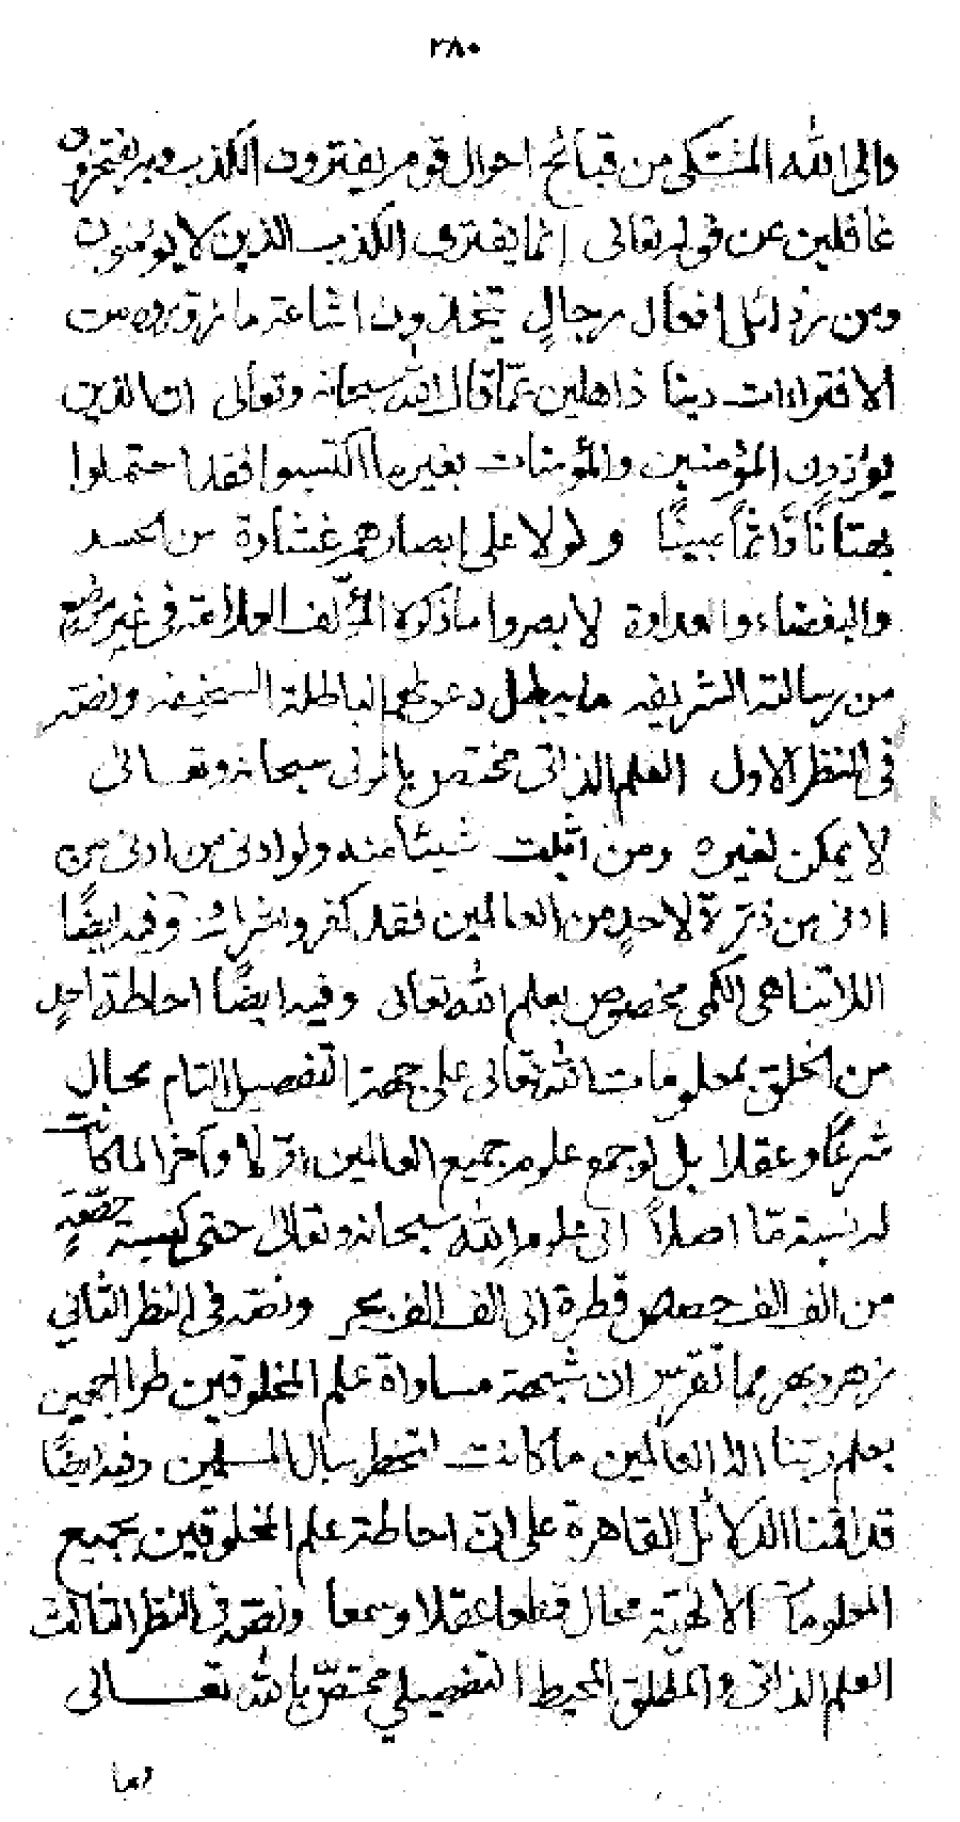 ٢٨٠
والى الله المشتكى من قبائح احوال قوم يفترون الكذب وبه يفتخرون
غافلين عن قوله تعالى إنما يفترى الكذب الذين لا يؤمنون
ومن رذائل افعال رجالٍ يتخذون اشاعة ما زوروه من
الافتراءات دينا ذاهلين عمّا قال الله سبحانه وتعالى ان الذين
يؤذون المؤمنين والمؤمنات بغير ما اكتسبوا فقد احتملوا
بهتانًا وّاثماً مبينًا ولولا على ابصارهم غشاوة من الحسد
والبغضاء والعداوة لابصروا ماذكره المؤلّف العلامة فى غير موضع
من رسالته الشريفه ما يبطل دعوٰهم الباطلة السخيفه ونصّه
فى النظر الاول العلم الذاتى مختص بالمولى سبحانه وتعالى
لا يمكن لغيره ومن اثبت شيئاً منه ولو ادنى من ادنى من
ادنى من ذرّة لاحدٍ من العالمين فقد كفر واشرك وفيه ايضًا
اللاتناهى الكمى مخصوص بعلم الله تعالى وفيه ايضًا احاطة احدٍ
من الخلق بمعلومات الله تعالى على جهة التفصيل التام محال
شرعًا وعقلا بل لوجمع علوم جميع العالمين اوّلا وآخرا لما كانت
له نسبة مّا اصلاً الى علوم الله سبحانه وتعالى حتى كنسبة حصّةٍ
من الف الف حصص قطرة الى الف الف بحر ونصّه فى النظر الثاني
زهر وبهر مما تقرّر ان شبهة مساواة علم المخلوقين طرا اجمعين
بعلم ربّنا اله العالمين ما كانت لتخطر ببال المسلمين وفيه ايضًا
قد اقمنا الدلائل القاهرة على انّ احاطة علم المخلوقين بجميع
المعلومات الالٰهيّة محال قطعا عقلا وسمعا ونصّه فى النظر الثالث
العلم الذاتى والمطلق المحيط التفصيلي مختصّ بالله تعالى
وما